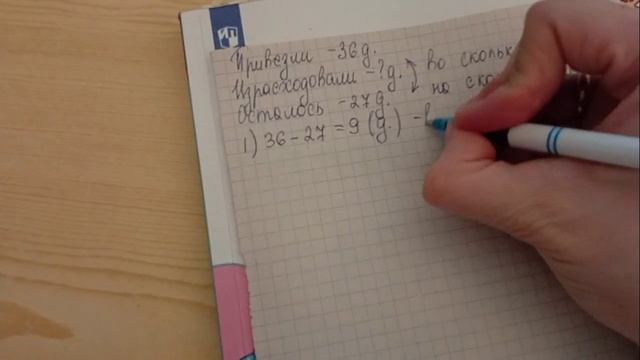 Привезли - 36 д.
Израсходовали - ? д. во
Осталось - 27 д. на
1) 36 - 27 = 9 (д.) -